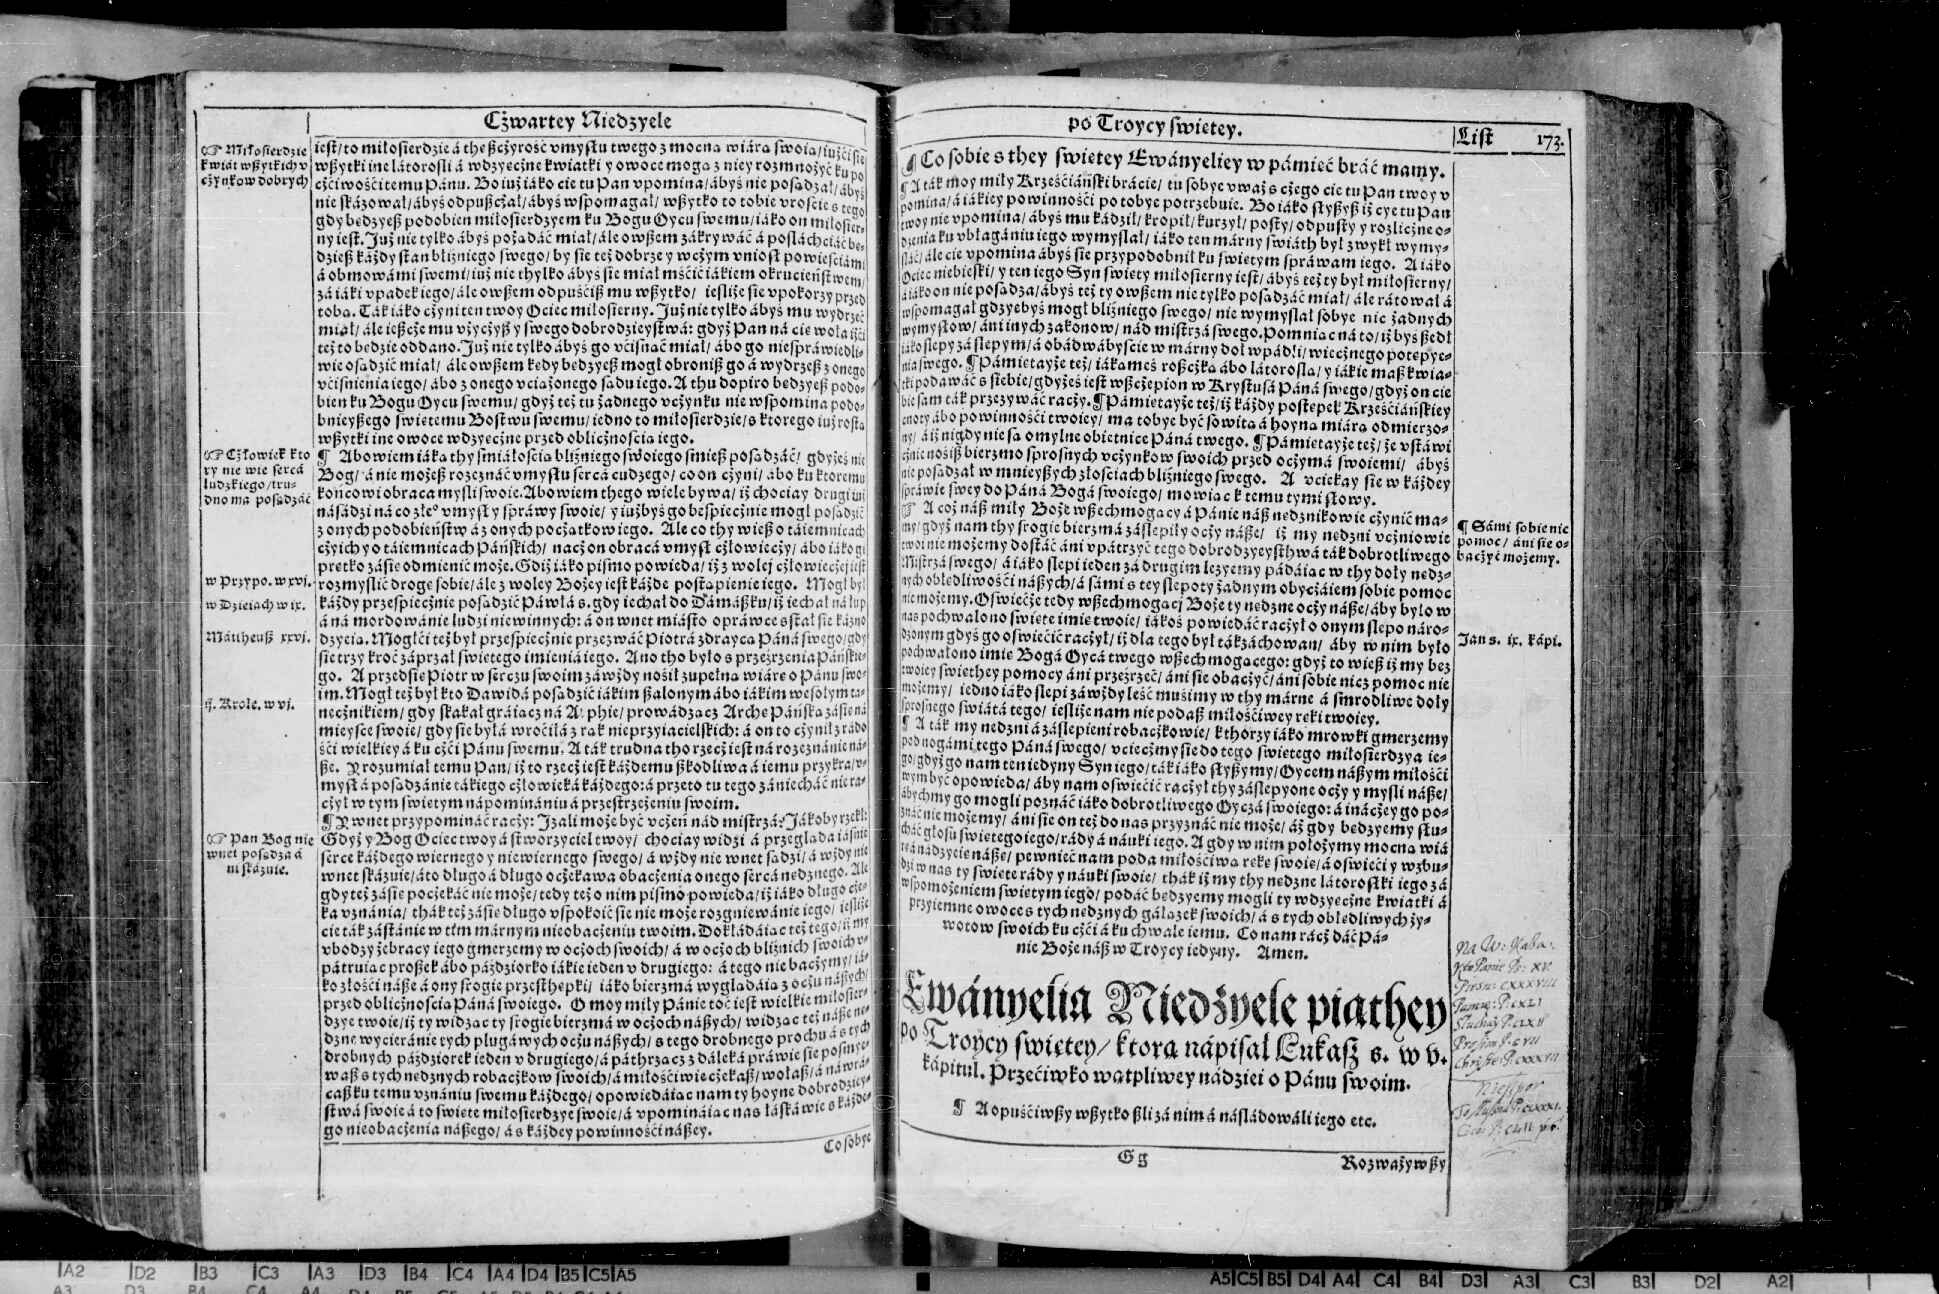 Czwartey Niedzyele
☞ Miłosierdzie
kwiat wßytkich v
czynkow dobrych
iest/ to miłosierdzie á theß czyrość vmysłu twego z mocną wiárą swoią/ iużći się
wßytki ine látorośli á wdzyęczne kwiatki y owoce mogą z niey rozmnożyć ku po
czćiwośći temu Pánu. Bo iuż iáko cię tu Pan vpomina/ ábyś nie posądzał/ ábyś
nie skázował/ ábyś odpußczał/ ábyś wspomagał/ wßytko to tobie vroście s tego
gdy będzyeß podobien miłosierdzyem ku Bogu Oycu swemu/ iáko on miłosier-
ny iest. Już nie tylko ábyś pożądáć miał/ ále owßem zákrywáć á poslachciáć bę-
dzieß káżdy stan bliźniego swego/ by się też dobrze y w czym vniosł powieściámi
á obmowámi swemi/ iuż nie thylko ábyś się miał mśćić iákiem okrucieństwem/
zá iáki vpadek iego/ ále owßem odpuśćiß mu wßytko/ iesliże się vpokorzy przed
tobą. Ták iáko czyni ten twoy Ociec miłosierny. Już nie tylko ábyś mu wydrzeć
miał/ ále ießcze mu vżyczyß y swego dobrodzieystwá: gdyż Pan ná cię woła iżći
też to będzie oddano. Już nie tylko ábyś go vćisnąć miał/ ábo go niespráwiedli-
wie osądzić miał/ ále owßem kedy będzyeß mogł obroniß go á wydrzeß z onego
vćiśnienia iego/ ábo z onego vciążonego sądu iego. A thu dopiro będzyeß podo-
bien ku Bogu Oycu swemu/ gdyż też tu żadnego vczynku nie wspomina podo-
bnieyßego świętemu Bostwu swemu/ iedno to miłosierdzie/ s ktorego iuż rostą
wßytki ine owoce wdzyęczne przed oblicznością iego.
☞ Człowiek kto
ry nie wie sercá
ludzkiego/ tru-
dno ma posądzáć
¶ Abowiem iáką thy śmiáłością bliźniego swoiego śmieß posądzáć/ gdyżeś nie
Bog/ á nie możeß rozeznáć vmysłu sercá cudzego/ co on czyni/ ábo ku ktoremu
końcowi obraca mysli swoie. Abowiem thego wiele bywa/ iż chociay drugi iuż
násádzi ná co złe° vmysł y spráwy swoie/ y iużbyś go bespiecznie mogł posądzić
z onych podobieństw á z onych początkow iego. Ale co thy wieß o táiemnicách
czyich y o táiemnicách Páńskich/ nacz on obraca vmysł człowieczy/ ábo iáko gi
prętko záśie odmienić może. Gdiż iáko pismo powieda/ iż z wolej człowieczej iest
w Przypo. w xvj.
rozmyslić drogę sobie/ ále z woley Bożey iest káżde postąpienie iego. Mogł był
w Dzieiach w ix.
káżdy przespiecznie posądzić Páwłá s. gdy iechał do Dámáßku/ iż iechał ná łup
á ná mordowánie ludzi niewinnych: á on wnet miásto opráwce sstał się káżno
Mattheuß xxvj.
dzyeią. Mogłći też był przespiecznie przezwáć Piotrá zdraycą Páná swego/ gdy
się trzy kroć záprzał świętego imieniá iego. Ano tho było s przeźrzenia Páńskie-
go. A przedsię Piotr w sercu swoim záwżdy nosił zupełną wiárę o Pánu swo-
im. Mogł też był kto Dawidá posądzić iákim ßalonym ábo iákim wesołym ta-
ij. Krole. w vj.
necznikiem/ gdy skakał gráiącz ná A phie/ prowádzącz Arche Páńską záśię ná
mieysce swoie/ gdy się była wroćiłá z rąk nieprzyiacielskich: á on to czynił z rádo
śći wielkiey á ku czći Pánu swemu. A ták trudna tho rzecz iest ná rozeznánie ná-
ße. Y rozumiał temu Pan/ iż to rzecz iest káżdemu ßkodliwa á iemu przykra/ v-
mysł á posądzánie tákiego człowieká káżdego: á przeto tu tego zániecháć nie ra-
czył w tym świętym nápominániu á przestrzeżeniu swoim.
¶ Y wnet przypomináć raczy: Izali może być vczeń nád mistrzá? Jákoby rzekł:
☞ Pan Bog nie
wnet posądza á
ni skázuie.
Gdyż y Bog Ociec twoy á stworzyciel twoy/ chociay widzi á przegląda iáśnie
serce káżdego wiernego y niewiernego swego/ á wżdy nie wnet sądzi/ á wżdy nie
wnet skázuie/ á to długo á długo oczekawa obaczenia onego sercá nędznego. Ale
gdy też záśie poczekáć nie może/ tedy też o nim pismo powieda/ iż iáko długo cze-
ka vznánia/ thák też záśie długo vspokoić się nie może rozgniewánie iego/ iesliże
cię ták zástánie w tim márnym nieobaczeniu twoim. Dokłádáiąc też tego/ iż my
vbodzy żebracy iego gmerzemy w oczoch swoich/ á w oczoch bliźnich swoich v-
pátruiąc proßek ábo páździorko iákie ieden v drugiego: á tego nie baczymy/ iá-
ko złośći náße á ony srogie przesthępki/ iáko bierzmá wyglądáią z oczu náßych/
przed oblicznością Páná swoiego. O moy miły Pánie toć iest wielkie miłosier-
dzye twoie/ iż ty widząc ty srogie bierzmá w oczoch náßych/ widząc też náße nę-
dzne wycieránie tych plugáwych oczu náßych/ s tego drobnego prochu á s tych
drobnych páździorek ieden v drugiego/ á páthrzącz z dáleká práwie się pośmye-
waß s tych nędznych robaczkow swoich/ á miłośćiwie czekaß/ wołaß/ á náwrá-
caßku temu vznániu swemu káżdego/ opowiedáiąc nam ty hoyne dobrodziey-
stwá swoie á to święte miłosierdzye swoie/ á vpomináiąc nas łáskáwie s káżde-
go nieobaczenia náßego/ á s káżdey powinnośći náßey.
Co sobye
po Troycy świętey.
List 173.
¶ Co sobie s they świętey Ewányeliey w pámięć bráć mamy.
¶ A ták moy miły Krześćiáński brácie/ tu sobye vważ s czego cię tu Pan twoy v
pomina/ á iákiey powinnośći po tobye potrzebuie. Bo iáko słyßyß iż cye tu Pan
twoy nie vpomina/ ábyś mu kádził/ kropił/ kurzył/ posty/ odpusty y rozliczne o-
dzenia ku vbłagániu iego wymyslał/ iáko ten márny świáth był zwykł wymy-
sláć/ ále cię vpomina ábyś się przypodobnił ku świętym spráwam iego. A iáko
Ociec niebieski/ y ten iego Syn święty miłosierny iest/ ábyś też ty był miłosierny/
á iáko on nie posądza/ ábyś też ty owßem nie tylko posądzáć miał/ ále rátował á
wspomagał gdzyebyś mogł bliźniego swego/ nie wymyslał sobye nic żadnych
wymysłow/ áni inych zakonow/ nád mistrzá swego. Pomniąc ná to/ iż byś ßedł
iáko slepy zá slepym/ á obádwá byście w márny doł wpádli/ wiecznego potępye-
nia swego. ¶ Pámiętayże też/ iákameś roßczka ábo látorosla/ y iákie maß kwia-
tki podawáć s siebie/ gdyżeś iest wßczepion w Krystusá Páná swego/ gdyż on cię
bie sam ták przezywáć raczy. ¶ Pámiętayże też/ iż káżdy postępek Krześćiáńskiey
cnoty ábo powinnośći twoiey/ ma tobye być sowitą á hoyną miárą odmierzo-
ny/ á iż nigdy nie są omylne obietnice Páná twego. ¶ Pámiętayże też/ że vstáwi
cznie nośiß bierzmo sprosnych vczynkow swoich przed oczymá swoiemi/ ábyś
nie posądzał w mnieyßych złościach bliźniego swego. A vciekay się w káżdey
spráwie swey do Páná Bogá swoiego/ mowiąc k temu tymi słowy.
¶ Sámi sobie nic
pomoc/ áni się o-
baczyć możemy.
☞ A coż náß miły Boże wßechmogący á Pánie náß nędznikowie czynić ma-
my/ gdyż nam thy srogie bierzmá záslepiły oczy náße/ iż my nędzni vczniowie
twoi nie możemy dostáć áni vpátrzyć tego dobrodzyeysthwá ták dobrotliwego
Mistrzá swego/ á iáko slepi ieden zá drugim leżyemy pádáiąc w thy doły nędz-
nych obłędliwośći náßych/ á sámi s tey slepoty żadnym obyczáiem sobie pomoc
nie możemy. Oświećże tedy wßechmogący Boże ty nędzne oczy náße/ áby było w
Jan s. ix. kápi.
nas pochwalono święte imię twoie/ iákoś powiedáć raczył o onym slepo náro-
dzonym gdyś go oświećić raczył/ iż dla tego był ták záchowan/ áby w nim było
pochwalono imię Bogá Oycá twego wßechmogącego: gdyż to wieß iż my bez
twoiey świethey pomocy áni przeźrzeć/ áni się obaczyć/ áni sobie nicz pomoc nie
możemy/ iedno iáko slepi záwżdy leść muśimy w thy márne á smrodliwe doły
sprosnego świátá tego/ iesliże nam nie podaß miłośćiwey ręki twoiey.
¶ A ták my nędzni á záslepieni robaczkowie/ kthorzy iáko mrowki gmerzemy
pod nogámi tego Páná swego/ vciećzmy się do tego świętego miłosierdzya ie-
go/ gdyż go nam ten iedyny Syn iego/ ták iáko słyßymy/ Oycem náßym miłośći
wym być opowieda/ áby nam oświećić raczył thy záslepyone oczy y mysli náße/
ábychmy go mogli poznáć iáko dobrotliwego Oyczá swoiego: á ináczey go po-
znáć nie możemy/ áni się on też do nas przyznáć nie może/ áż gdy będzyemy słu-
cháć głosu świętego iego/ rády á náuki iego. A gdy w nim położymy mocną wiá
rę á nádzyeię náße/ pewnieć nam poda miłośćiwą rękę swoię/ á oświeći y wzbu-
dzi w nas ty święte rády y náuki swoie/ thák iż my thy nędzne látorostki iego zá
wspomożeniem świętym iego/ podáć będzyemy mogli ty wdzyęczne kwiatki á
przyiemne owoce s tych nędznych gáłązek swoich/ á s tych obłędliwych ży-
wotow swoich ku czći á ku chwale iemu. Co nam rácz dáć Pá-
nie Boże náß w Troycy iedyny. Amen.
Ewányelia Niedźyele piąthey
po Troycy świętey/ ktorą nápisał Łukaß s. w v.
kápitul. Przećiwko wątpliwey nádziei o Pánu swoim.
¶ A opuśćiwßy wßytko ßli zá nim á násládowáli iego etc.
Gg
Rozważywßy